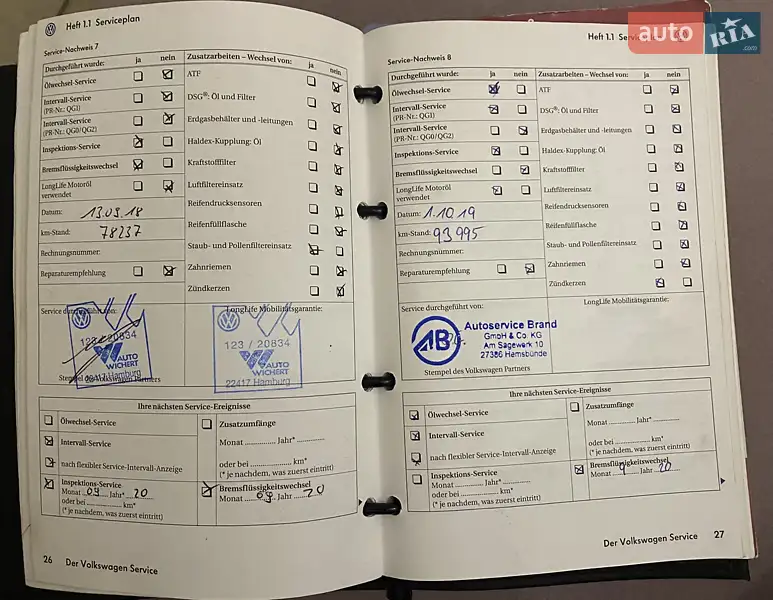 Heft 1.1 Serviceplan
Service-Nachweis 7
Durchgeführt wurde: ja nein
Ölwechsel-Service
Intervall-Service
(PR-Nr.: QG1)
Intervall-Service
(PR-Nr.: QG0/QG2)
Inspektions-Service
Bremsflüssigkeitswechsel
LongLife Motoröl
verwendet
Datum: 13.09.18
km-Stand: 78237
Rechnungsnummer:
Reparaturempfehlung
Zusatzarbeiten – Wechsel von: ja nein
ATF
DSG®: Öl und Filter
Erdgasbehälter und -leitungen
Haldex-Kupplung: Öl
Kraftstofffilter
Luftfiltereinsatz
Reifendrucksensoren
Reifenfüllflasche
Staub- und Pollenfiltereinsatz
Zahnriemen
Zündkerzen
Service durchgeführt von:
123 / 20834
AUTO
WICHERT
22417 Hamburg
Stempel des Volkswagen Partners
LongLife Mobilitätsgarantie:
123 / 20834
AUTO
WICHERT
22417 Hamburg
Ihre nächsten Service-Ereignisse
Ölwechsel-Service
Intervall-Service
nach flexibler Service-Intervall-Anzeige
Inspektions-Service
Monat 09 Jahr* 20
oder bei ............ km*
(* je nachdem, was zuerst eintritt)
Zusatzumfänge
Monat ............ Jahr* ............
oder bei ............ km*
(* je nachdem, was zuerst eintritt)
Bremsflüssigkeitswechsel
Monat 09 Jahr 20
26 Der Volkswagen Service
Heft 1.1
Service-Nachweis 8
Durchgeführt wurde: ja nein
Ölwechsel-Service
Intervall-Service
(PR-Nr.: QG1)
Intervall-Service
(PR-Nr.: QG0/QG2)
Inspektions-Service
Bremsflüssigkeitswechsel
LongLife Motoröl
verwendet
Datum: 1.10.19
km-Stand: 93995
Rechnungsnummer:
Reparaturempfehlung
Zusatzarbeiten – Wechsel von: ja nein
ATF
DSG®: Öl und Filter
Erdgasbehälter und -leitungen
Haldex-Kupplung: Öl
Kraftstofffilter
Luftfiltereinsatz
Reifendrucksensoren
Reifenfüllflasche
Staub- und Pollenfiltereinsatz
Zahnriemen
Zündkerzen
Service durchgeführt von:
AB
Autoservice Brand
GmbH & Co. KG
Am Sägewerk 10
27386 Hemsbünde
Stempel des Volkswagen Partners
LongLife Mobilitätsgarantie:
Ihre nächsten Service-Ereignisse
Ölwechsel-Service
Intervall-Service
nach flexibler Service-Intervall-Anzeige
Inspektions-Service
Monat ............ Jahr* ............
oder bei ............ km*
(* je nachdem, was zuerst eintritt)
Zusatzumfänge
Monat ............ Jahr* ............
oder bei ............ km*
(* je nachdem, was zuerst eintritt)
Bremsflüssigkeitswechsel
Monat 9 Jahr 20
Der Volkswagen Service 27
auto RIA .com